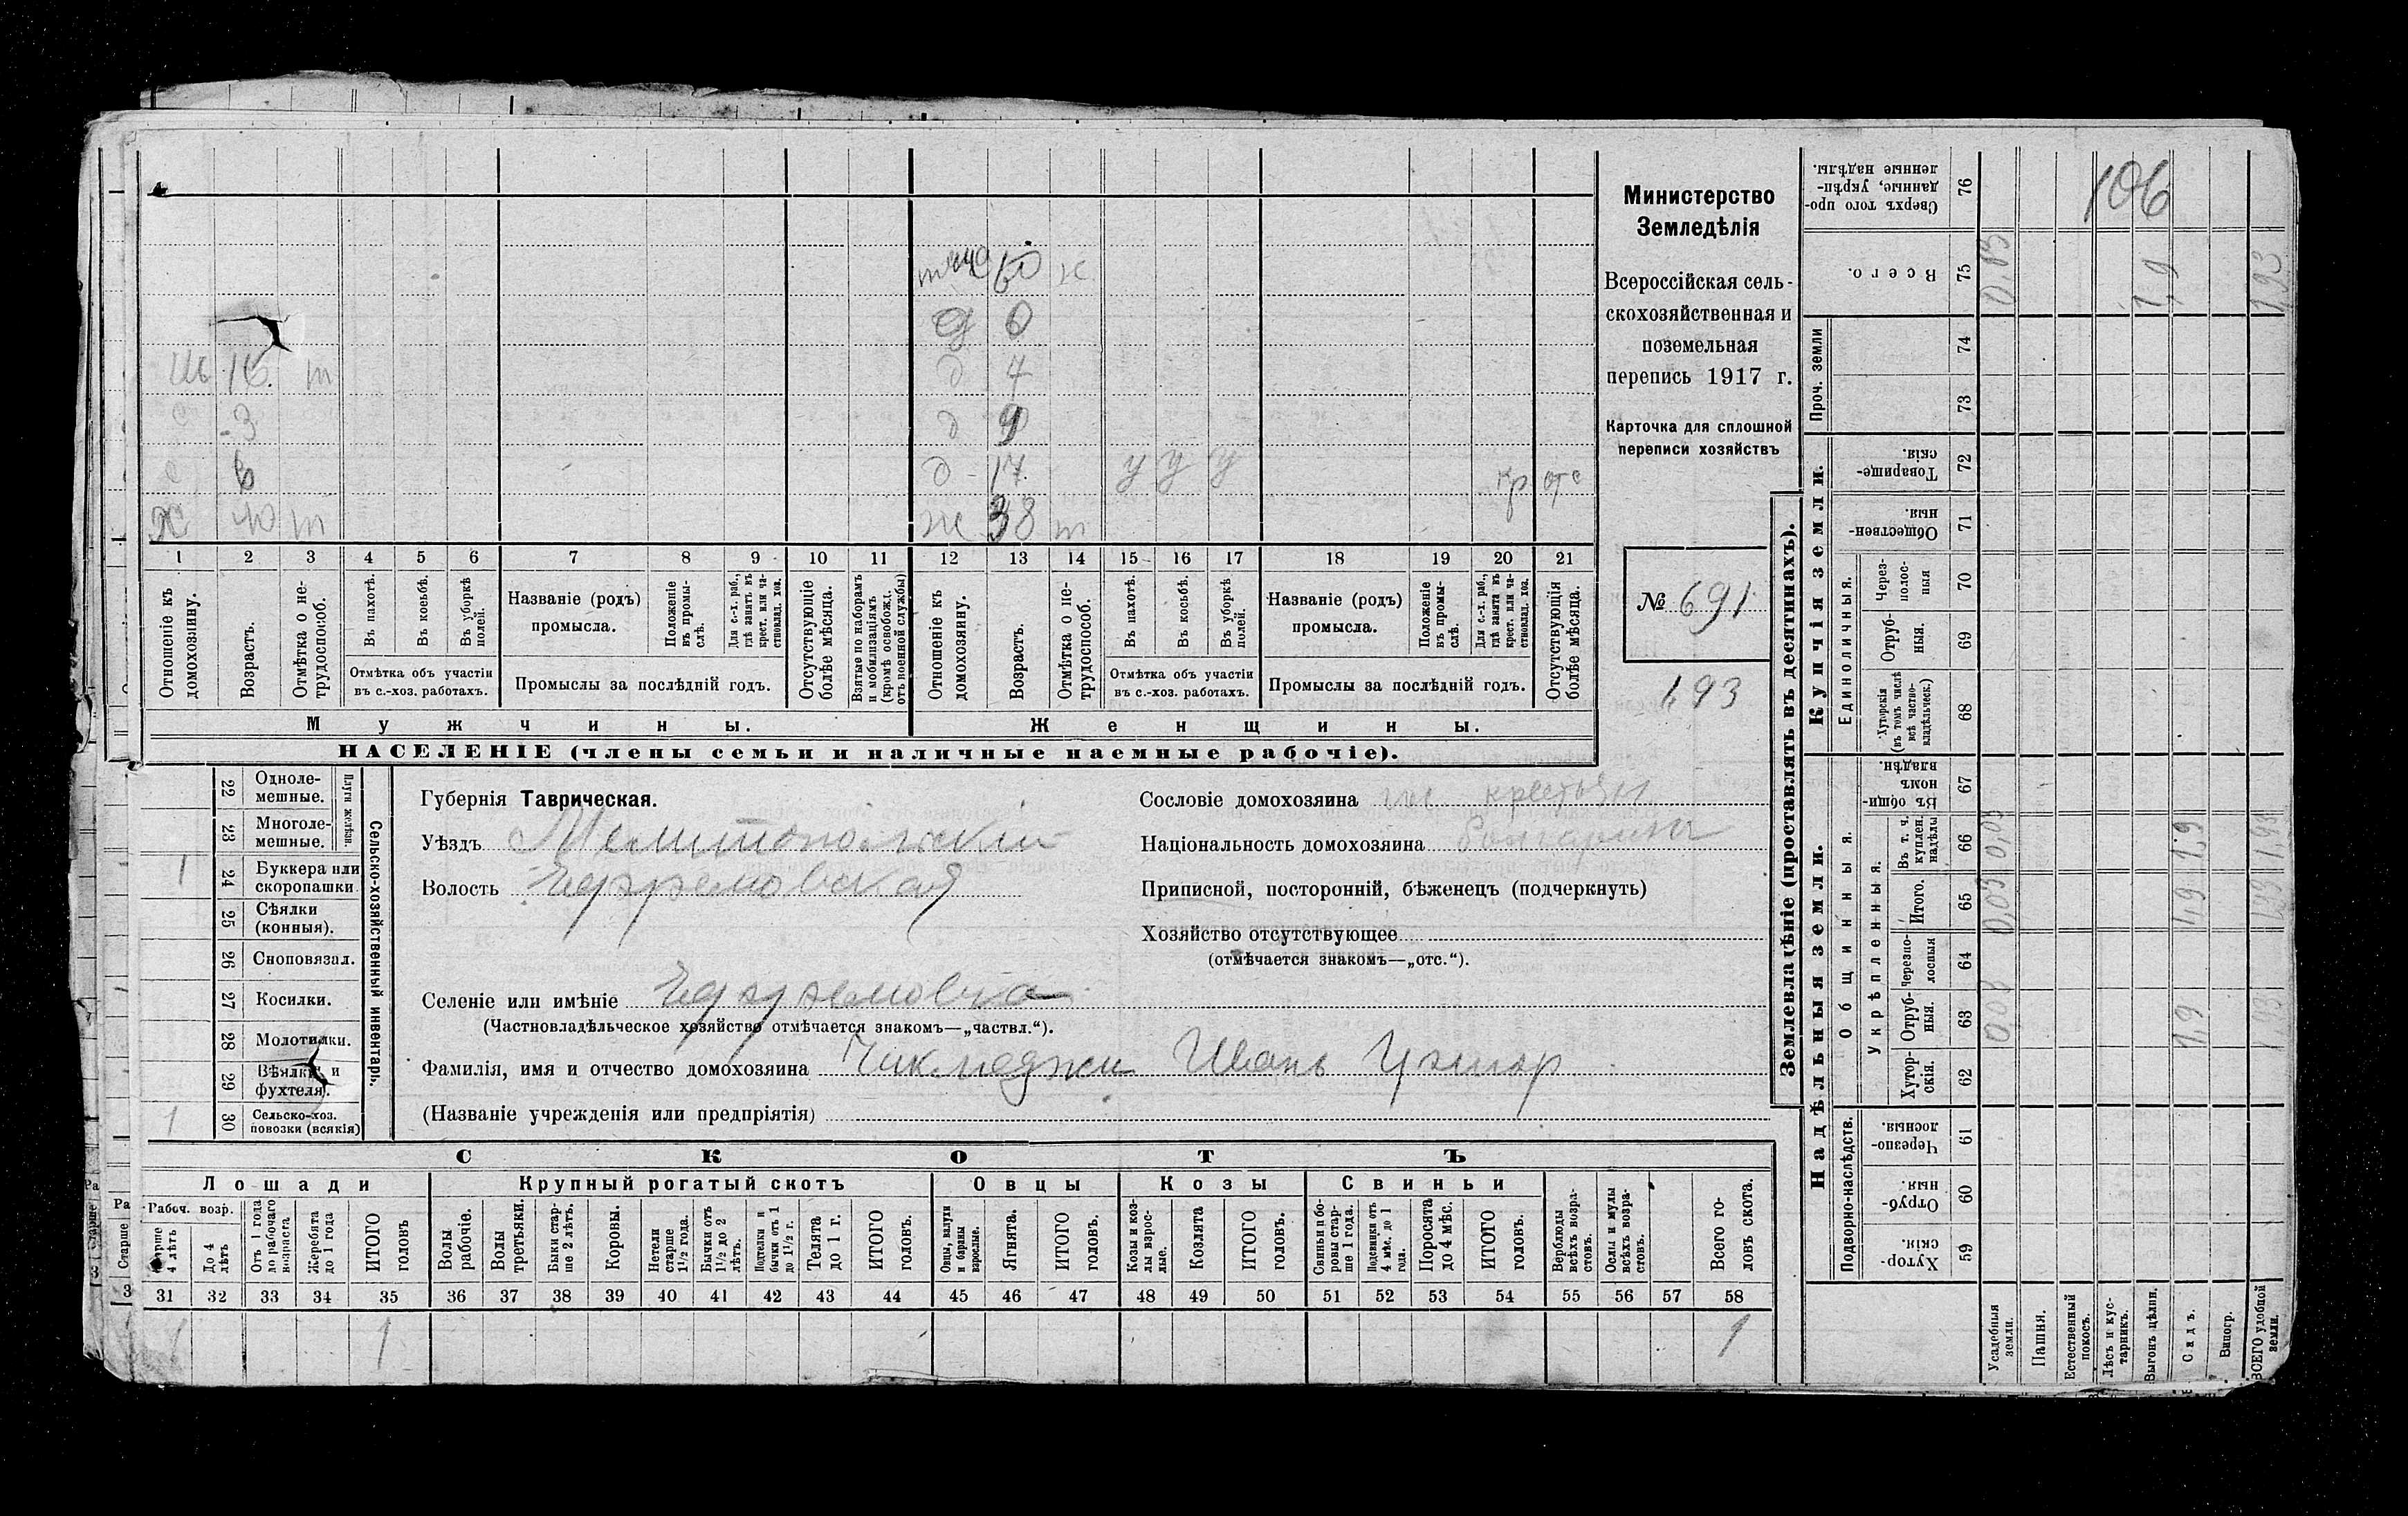 Министерство
Земледѣлія
Всероссійская сель-
скохозяйственная и
поземельная
перепись 1917 г.
Карточка для сплошной
переписи хозяйствъ
№ 691
693
тща 60 н
д 6
16 т д 7
с 3 д 9
с 6 д 17 у у у кр отс
Х 40 т ж 38 т
1 2 3 4 5 6 7 8 9 10 11 12 13 14 15 16 17 18 19 20 21
Отношеніе къ домохозяину.
Возрастъ.
Отмѣтка о не-трудоспособ.
Въ пахотѣ.
Въ косьбѣ.
Въ уборкѣ полей.
Отмѣтка объ участіи
въ с.-хоз. работахъ.
Названіе (родъ)
промысла.
Положеніе въ промы-слѣ.
Для с.-х. раб., гдѣ занятъ въ крест. или ча-стновлад. хоз.
Промыслы за послѣдній годъ.
Отсутствующіе болѣе мѣсяца.
Взятые по наборамъ и мобилизаціямъ (кромѣ освобожд. отъ военной службы)
Отношеніе къ домохозяину.
Возрастъ.
Отмѣтка о не-трудоспособ.
Въ пахотѣ.
Въ косьбѣ.
Въ уборкѣ полей.
Отмѣтка объ участіи
въ с.-хоз. работахъ.
Названіе (родъ)
промысла.
Положеніе въ промы-слѣ.
Для с.-х. раб., гдѣ занята въ крест. или ча-стновлад. хоз.
Промыслы за послѣдній годъ.
Отсутствующія болѣе мѣсяца.
Мужчины.
Женщины.
НАСЕЛЕНІЕ (члены семьи и наличные наемные рабочіе).
Сельско-хозяйственный инвентарь.
Плуги желѣзн.
22 Одноле-мешные.
23 Многоле-мешные.
1 24 Буккера или скоропашки.
25 Сѣялки (конныя).
26 Сноповязал.
27 Косилки.
28 Молотилки.
29 Вѣялки и фухтеля.
1 30 Сельско-хоз. повозки (всякія)
Губернія Таврическая.
Уѣздъ Мелитопольскій
Волость Ефремовская
Селеніе или имѣніе Ефремовка
(Частновладѣльческое хозяйство отмѣчается знакомъ—„частвл.“).
Фамилія, имя и отчество домохозяина Чикмеджи Иванъ
(Названіе учрежденія или предпріятія)
Сословіе домохозяина крестьян
Національность домохозяина Болгаринъ
Приписной, посторонній, бѣженецъ (подчеркнуть)
Хозяйство отсутствующее
(отмѣчается знакомъ—„отс.“).
СКОТЪ
Лошади
Крупный рогатый скотъ
Овцы
Козы
Свиньи
Рабоч. возр.
Старше 4 лѣтъ
До 4 лѣтъ
Отъ 1 года до рабочаго возраста
Жеребята до 1 года
ИТОГО головъ
Волы рабочіе.
Волы третьяки.
Быки стар-ше 2 лѣтъ.
Коровы.
Нетели старше 1½ года.
Бычки отъ 1½ до 2 лѣтъ.
Подтелки и бычки отъ 1 до 1½ г.
Телята до 1 г.
ИТОГО головъ.
Овцы, валухи и бараны взрослые.
Ягнята.
ИТОГО головъ.
Козы и коз-лы взрос-лые.
Козлята
ИТОГО головъ.
Свиньи и бо-ровы стар-ше 1 года.
Подсвинки отъ 4 мѣс. до 1 года.
Поросята до 4 мѣс.
ИТОГО головъ.
Верблюды всѣхъ возра-стовъ.
Ослы и мулы всѣхъ возра-стовъ.
Всего го-ловъ скота.
31 32 33 34 35 36 37 38 39 40 41 42 43 44 45 46 47 48 49 50 51 52 53 54 55 56 57 58
1 1 1
Землевладѣніе (проставлять въ десятинахъ).
Надѣльныя земли.
Купчія земли.
Проч. земли
Подворно-наслѣдств.
Общинныя.
Укрѣпленныя.
Единоличныя.
Сверхъ того про-данные, укрѣп-ленные надѣлы. 76 106
Всего. 75 1,9 1,93
74
73
Товарище-скія. 72
Обществен-ныя. 71
Через-полос-ныя 70
Отруб-ныя. 69
Хуторскія (въ томъ числѣ всѣ частно-владѣльческ.) 68
Въ общин-номъ владѣн. 67
Въ т. ч. куплен. надѣлы 66 0,03 1,9 1,93
Итого. 65 0,03 1,9 1,93
Черезпо-лосныя 64
Отруб-ныя. 63 1,9
Хутор-скія. 62
Черезпо-лосныя. 61
Отруб-ныя. 60
Хутор-скія. 59
Усадебныя земли.
Пашня.
Естественный покосъ.
Лѣсъ и кус-тарникъ.
Выгонъ цѣлин.
Садъ.
Виногр.
ВСЕГО удобной земли.